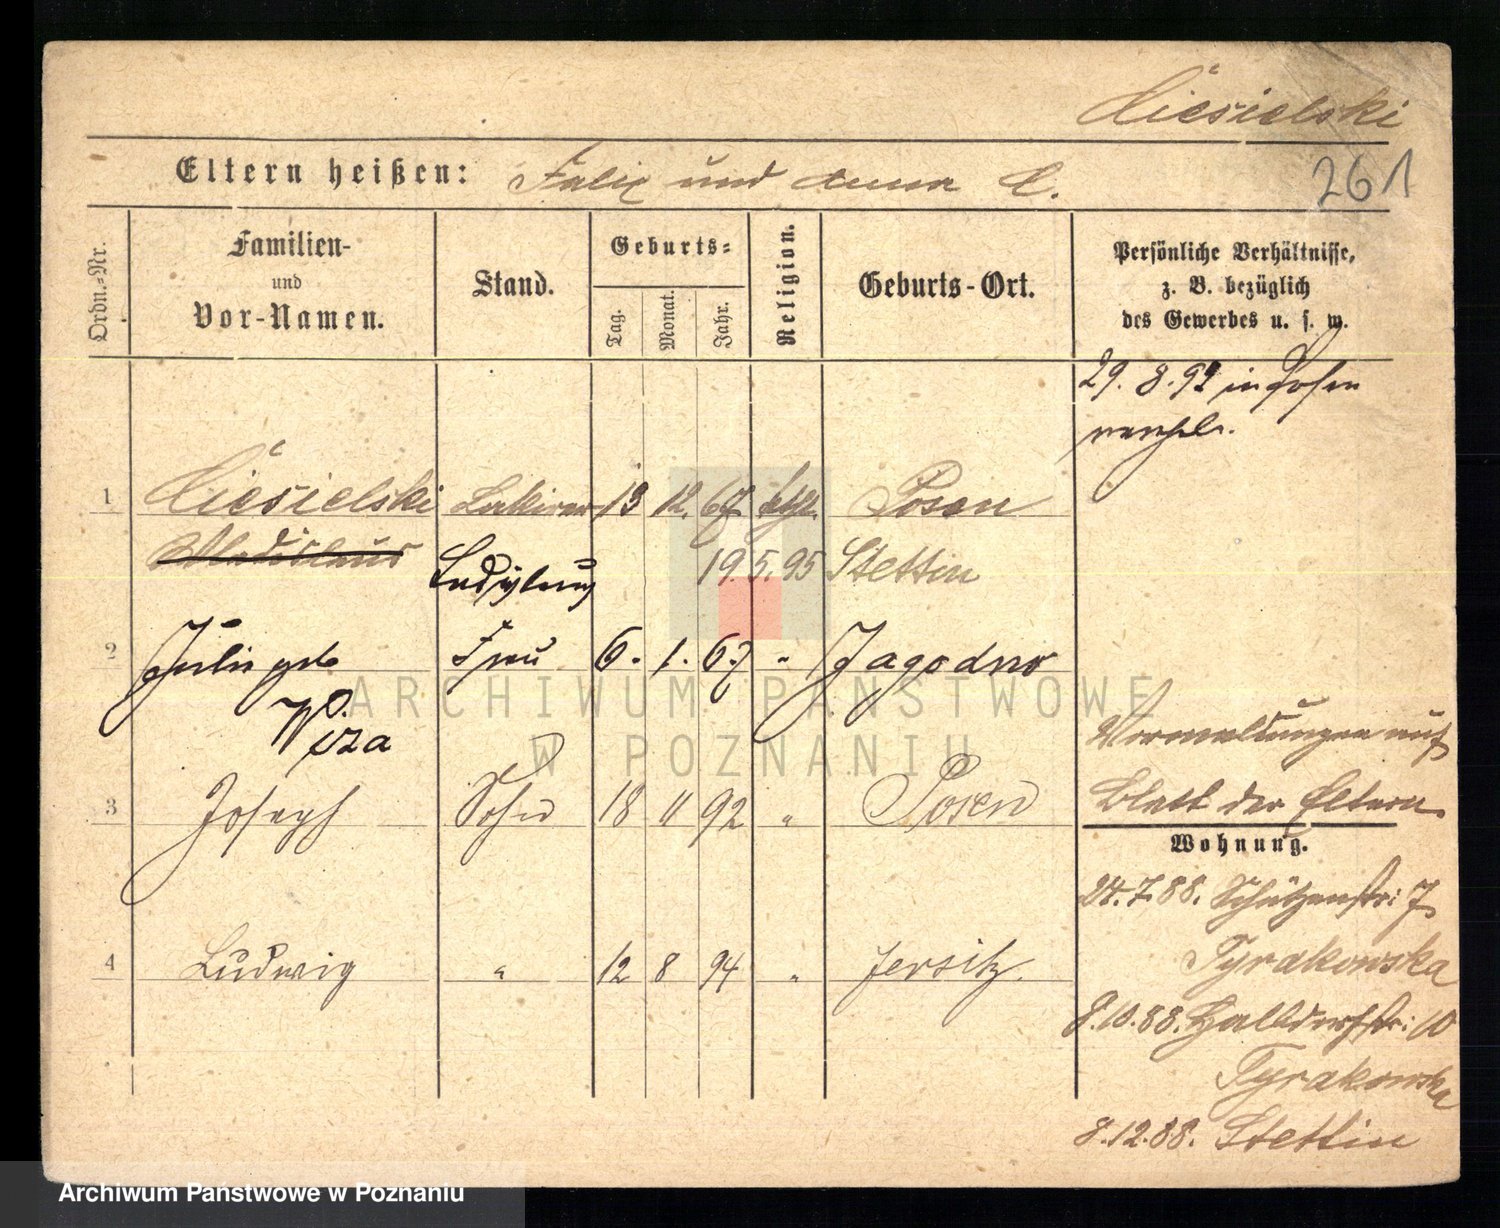 Ciesielski
Eltern heißen: Felix und Anna C.
261
Ordn.-Nr.
Familien-
und
Vor-Namen.
Stand.
Geburts-
Tag.
Monat.
Jahr.
Religion.
Geburts-Ort.
Persönliche Verhältnisse,
z. B. bezüglich
des Gewerbes u. s. w.
29. 8. 92 in Posen
verehel.
1 Ciesielski Lakirer 13 12. 67 kath. Posen
Wladislaus 19. 5. 95 Stettin
2 Julie geb. Frau 6. 1. 67 " Jagodno
Wiza
Vormeldungen auf
Blatt der Eltern.
3 Joseph Sohn 18 11 92 " Posen
Wohnung.
24. 7. 88. Schützenstr: 7
Tyrakowska
4 Ludwig " 12 8 94 " Jersitz.
8. 10. 88. Halbdorfstr: 10
Tyrakowska
8. 12. 88. Stettin
ARCHIWUM PAŃSTWOWE
W POZNANIU
Archiwum Państwowe w Poznaniu